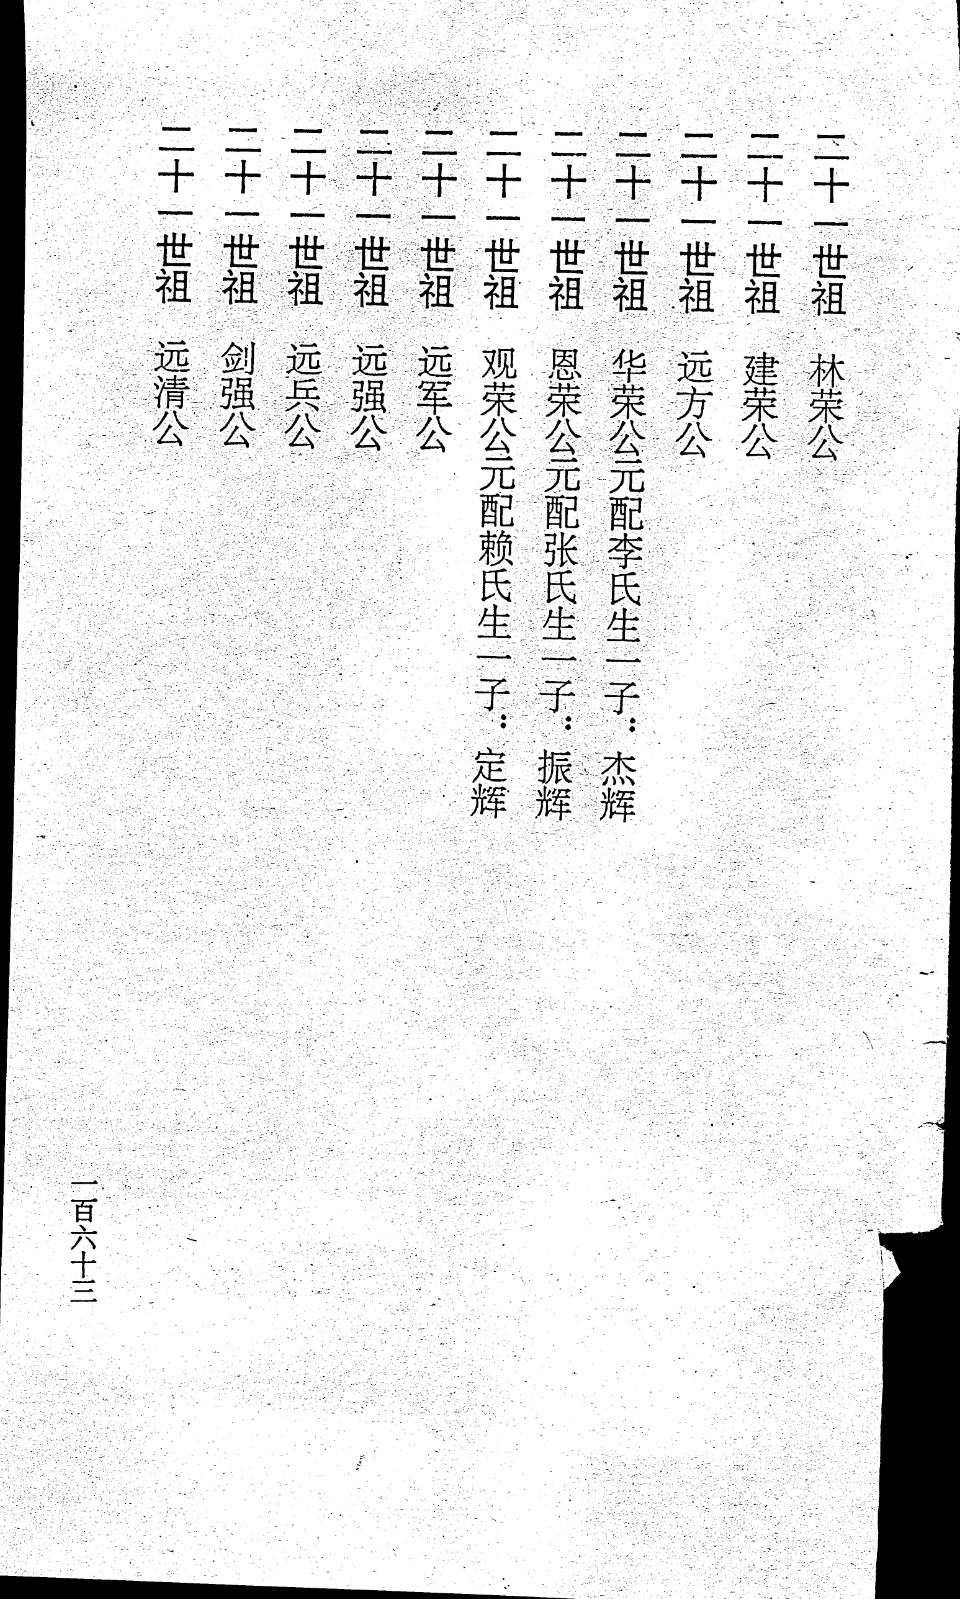 二十一世祖 林荣公
二十一世祖 建荣公
二十一世祖 远方公
二十一世祖 华荣公元配李氏生一子：杰辉
二十一世祖 恩荣公元配张氏生一子：振辉
二十一世祖 观荣公元配赖氏生一子：定辉
二十一世祖 远军公
二十一世祖 远强公
二十一世祖 远兵公
二十一世祖 剑强公
二十一世祖 远清公
一百六十三